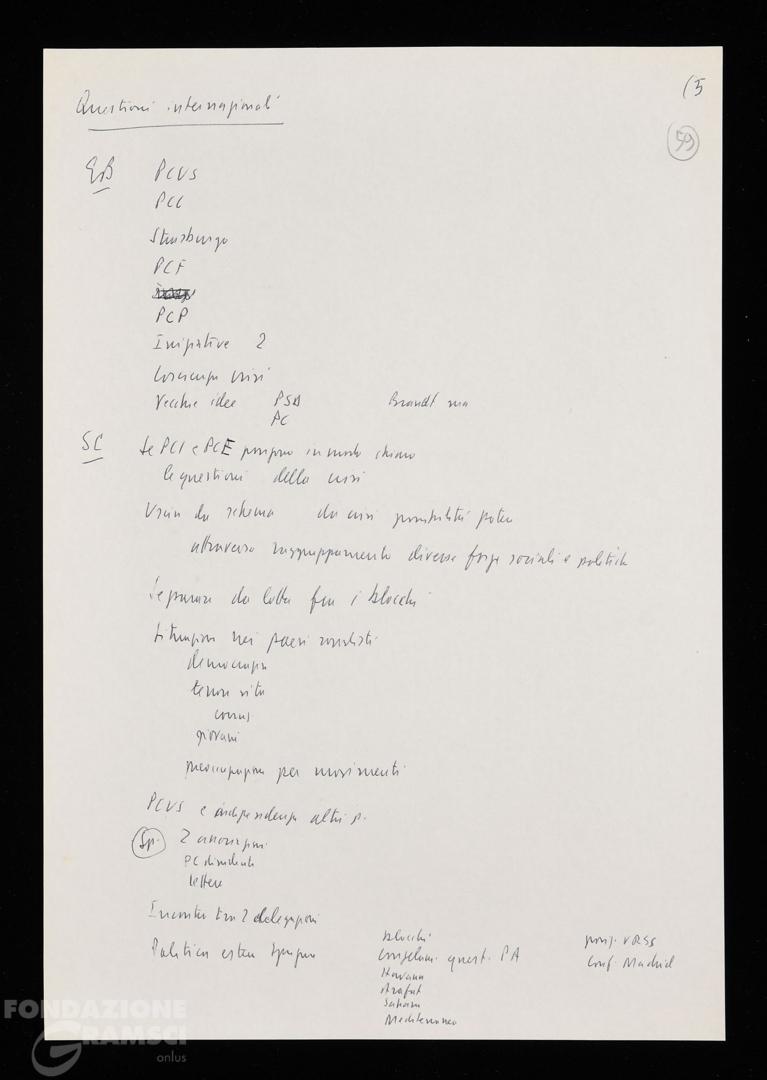 (5
59
Questioni internazionali
EB PCUS
PCC
Strasburgo
PCF
PCP
Iniziative 2
Coscienza crisi
Vecchie idee PSD Brandt ma
PC
SC Se PCI e PCE pongono in modo chiaro
le questioni della crisi
Uscire da schema da crisi possibilità potere
attraverso raggruppamento diverse forze sociali e politiche
Separare da lotta fra i blocchi
Situazione nei paesi socialisti
democrazia
tenore vita
giovani
preoccupazione per movimenti
PCUS e indipendenza altri p.
Sp. 2 associazioni
PC dissidente
lettere
Incontri tra 2 delegazioni
Politica estera Spagna blocchi posiz. URSS
congelam. quest. PA Conf. Madrid
Havana
Arafat
Sahara
Mediterraneo
FONDAZIONE
GRAMSCI
onlus